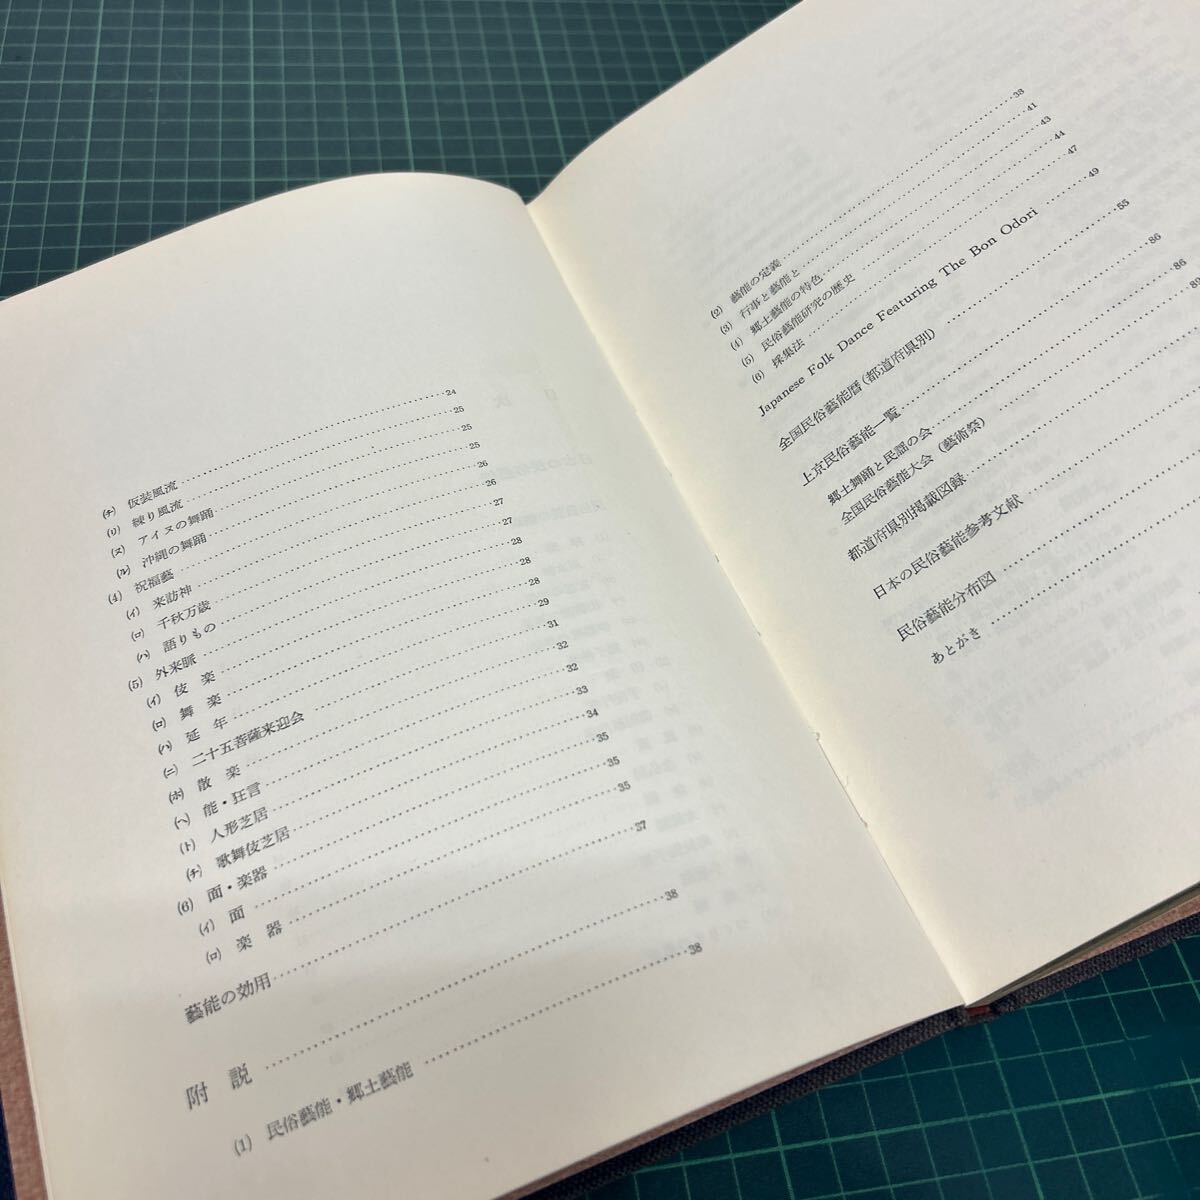 (チ) 仮装風流……24
(リ) 練り風流……25
(ヌ) アイヌの舞踊……25
(ル) 沖縄の舞踊……25
(4) 祝福藝……26
(イ) 来訪神……26
(ロ) 千秋万歳……27
(ハ) 語りもの……27
(5) 外来脈……28
(イ) 伎 楽……28
(ロ) 舞 楽……28
(ハ) 延 年……29
(ニ) 二十五菩薩来迎会……31
(ホ) 散 楽……32
(ヘ) 能・狂言……32
(ト) 人形芝居……33
(チ) 歌舞伎芝居……34
(6) 面・楽器……35
(イ) 面……35
(ロ) 楽 器……35
藝能の効用……37
附 説……38
(1) 民俗藝能・郷土藝能……38
(2) 藝能の定義……38
(3) 行事と藝能と……41
(4) 郷土藝能の特色……43
(5) 民俗藝能研究の歴史……44
(6) 採集法……47
Japanese Folk Dance Featuring The Bon Odori……49
全国民俗藝能暦(都道府県別)……55
上京民俗藝能一覧……86
郷土舞踊と民謡の会……86
全国民俗藝能大会(藝術祭)……89
都道府県別掲載図録
日本の民俗藝能参考文献
民俗藝能分布図
あとがき